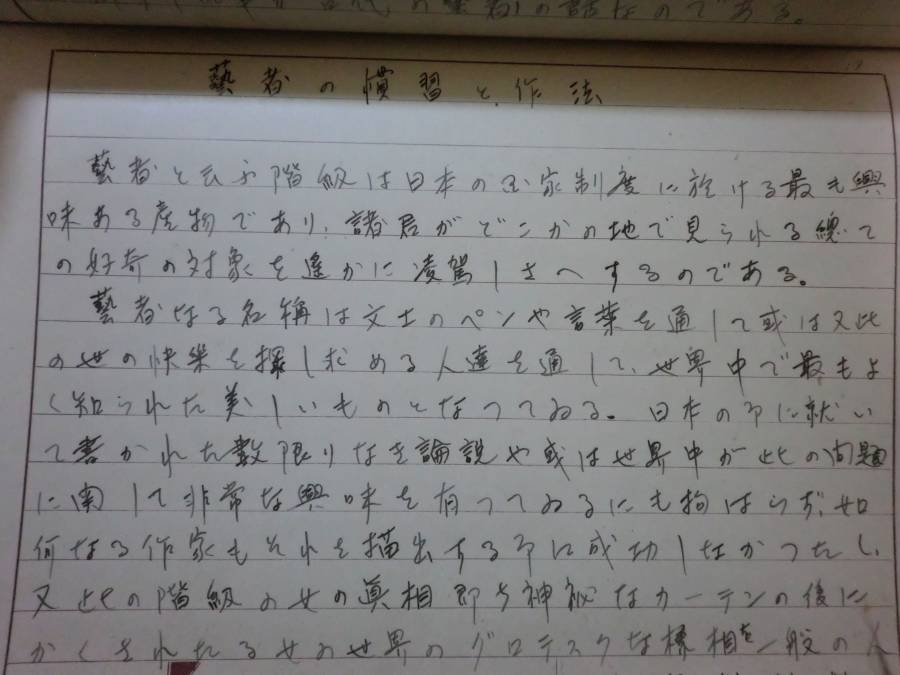 の話なのである。
藝者の慣習と作法
藝者と云ふ階級は日本の国家制度に於ける最も興
味ある産物であり、諸君がどこかの地で見られる總て
の好奇の対象を遙かに凌駕しさへするのである。
藝者なる名稱は文士のペンや言葉を通して或は又此
の世の快楽を探し求める人達を通して、世界中で最もよ
く知られた美しいものとなつてゐる。日本の事に就い
て書かれた数限りなき論説や或は世界中が此の問題
に関して非常な興味を有つてゐるにも拘はらず、如
何なる作家もそれを描出する事に成功しなかつたし、
又此の階級の女の真相即ち神秘なカーテンの後に
かくされたる女の世界のグロテスクな様相を一般の人